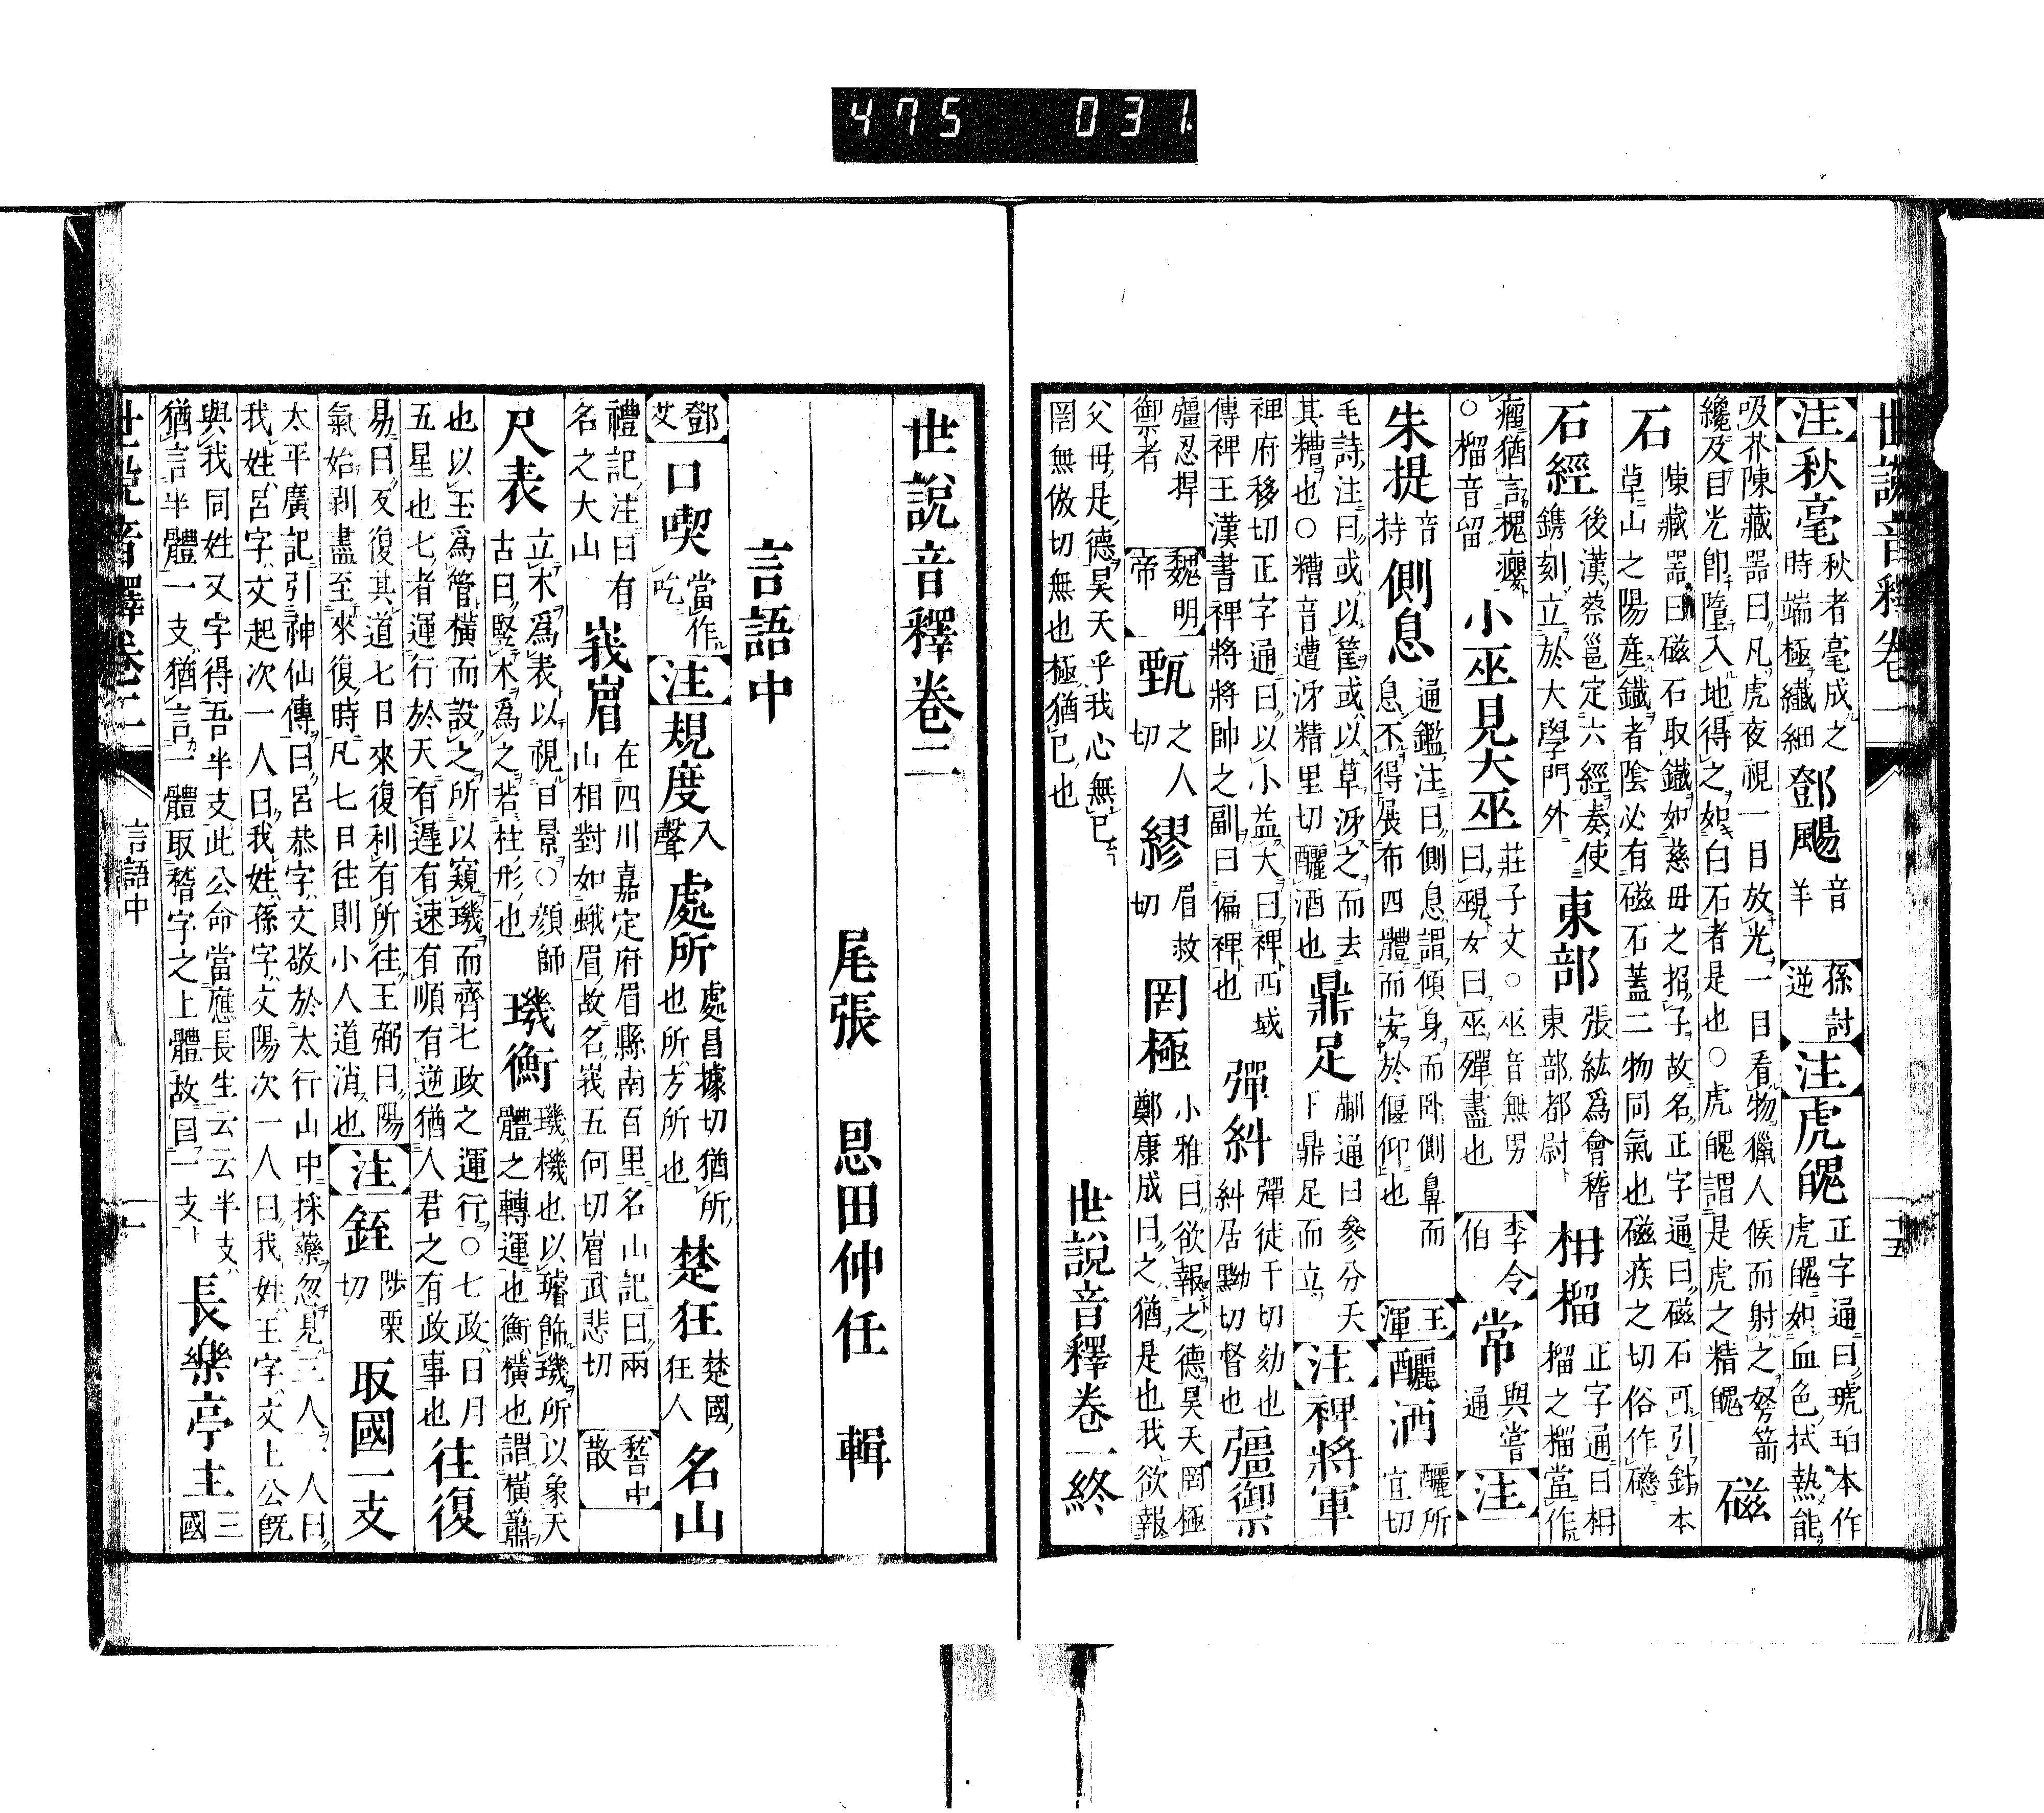 475 031
世說音釋卷一
十五
注 秋毫 秋者毫成之時端極纖細 鄧颺 音羊 孫討逆 注 虎䰟 正字通曰琥珀本作虎䰟如血色拭熱能
吸芥陳藏器曰凡虎夜視一目放光一目看物獵人候而射之弩箭纔及目光卽墮入地得之如白石者是也○虎䰟謂是虎之精䰟 磁
石 陳藏器曰磁石取鐵如慈母之招子故名正字通曰磁石可引鍼本草山之陽產鐵者陰必有磁石蓋二物同氣也磁疾之切俗作礠
石經 後漢蔡邕定六經奏使鐫刻立於大學門外 東部 張紘爲會稽東部都尉 枏榴 正字通曰枏榴之榴當作
瘤猶言槐癭○榴音留 小巫見大巫 莊子文○巫音無男曰覡女曰巫殫盡也 李令伯 常 與嘗通 注
朱提 音持 側息 通鑑注曰側息謂傾身而臥側鼻而息不得展布四體而安於偃仰也 王渾 釃酒 釃所宜切
毛詩注曰或以筐或以草泲之而去其糟也○糟音遭泲精里切釃酒也 鼎足 蒯通曰參分天下鼎足而立 注 裨將軍
裨府移切正字通曰以小益大曰裨西域傳裨王漢書裨將將帥之副曰偏裨也 彈糾 彈徒干切劾也糾居黝切督也 彊禦
彊忍捍禦者 魏明帝 甄 之人切 繆 眉救切 罔極 小雅曰欲報之德昊天罔極鄭康成曰之猶是也我欲報
父母是德昊天乎我心無已罔無倣切無也極猶已也
世說音釋卷一終
世說音釋卷二
尾張 恩田仲任 輯
言語中
鄧艾 口喫 當作吃 注 規度 入聲 處所 處昌據切猶所也所方所也 楚狂 楚國狂人 名山
禮記注曰有名之大山 峩嵋 在四川嘉定府眉縣南百里名山記曰兩山相對如蛾眉故名峩五何切嵋武悲切 嵇中散
尺表 立木爲表以視日景○顏師古曰豎木爲之若柱形也 璣衡 璣機也以璿飾璣所以象天體之轉運也衡橫也謂橫簫
也以玉爲管橫而設之所以窺璣而齊七政之運行○七政日月五星也七者運行於天有遲有速有順有逆猶人君之有政事也 往復
易曰反復其道七日來復利有所往王弼曰陽氣始剥盡至來復時凡七日往則小人道消也 注 銍 陟栗切 取國一支
太平廣記引神仙傳曰呂恭字文敬於太行山中採藥忽見三人一人曰我姓呂字文起次一人曰我姓孫字文陽次一人曰我姓王字文上公旣
與我同姓又字得吾半支此公命當應長生云云半支猶言半體一支猶言一體取嵇字之上體故曰一支 長樂亭主 三國
世說音釋卷二
言語中
一